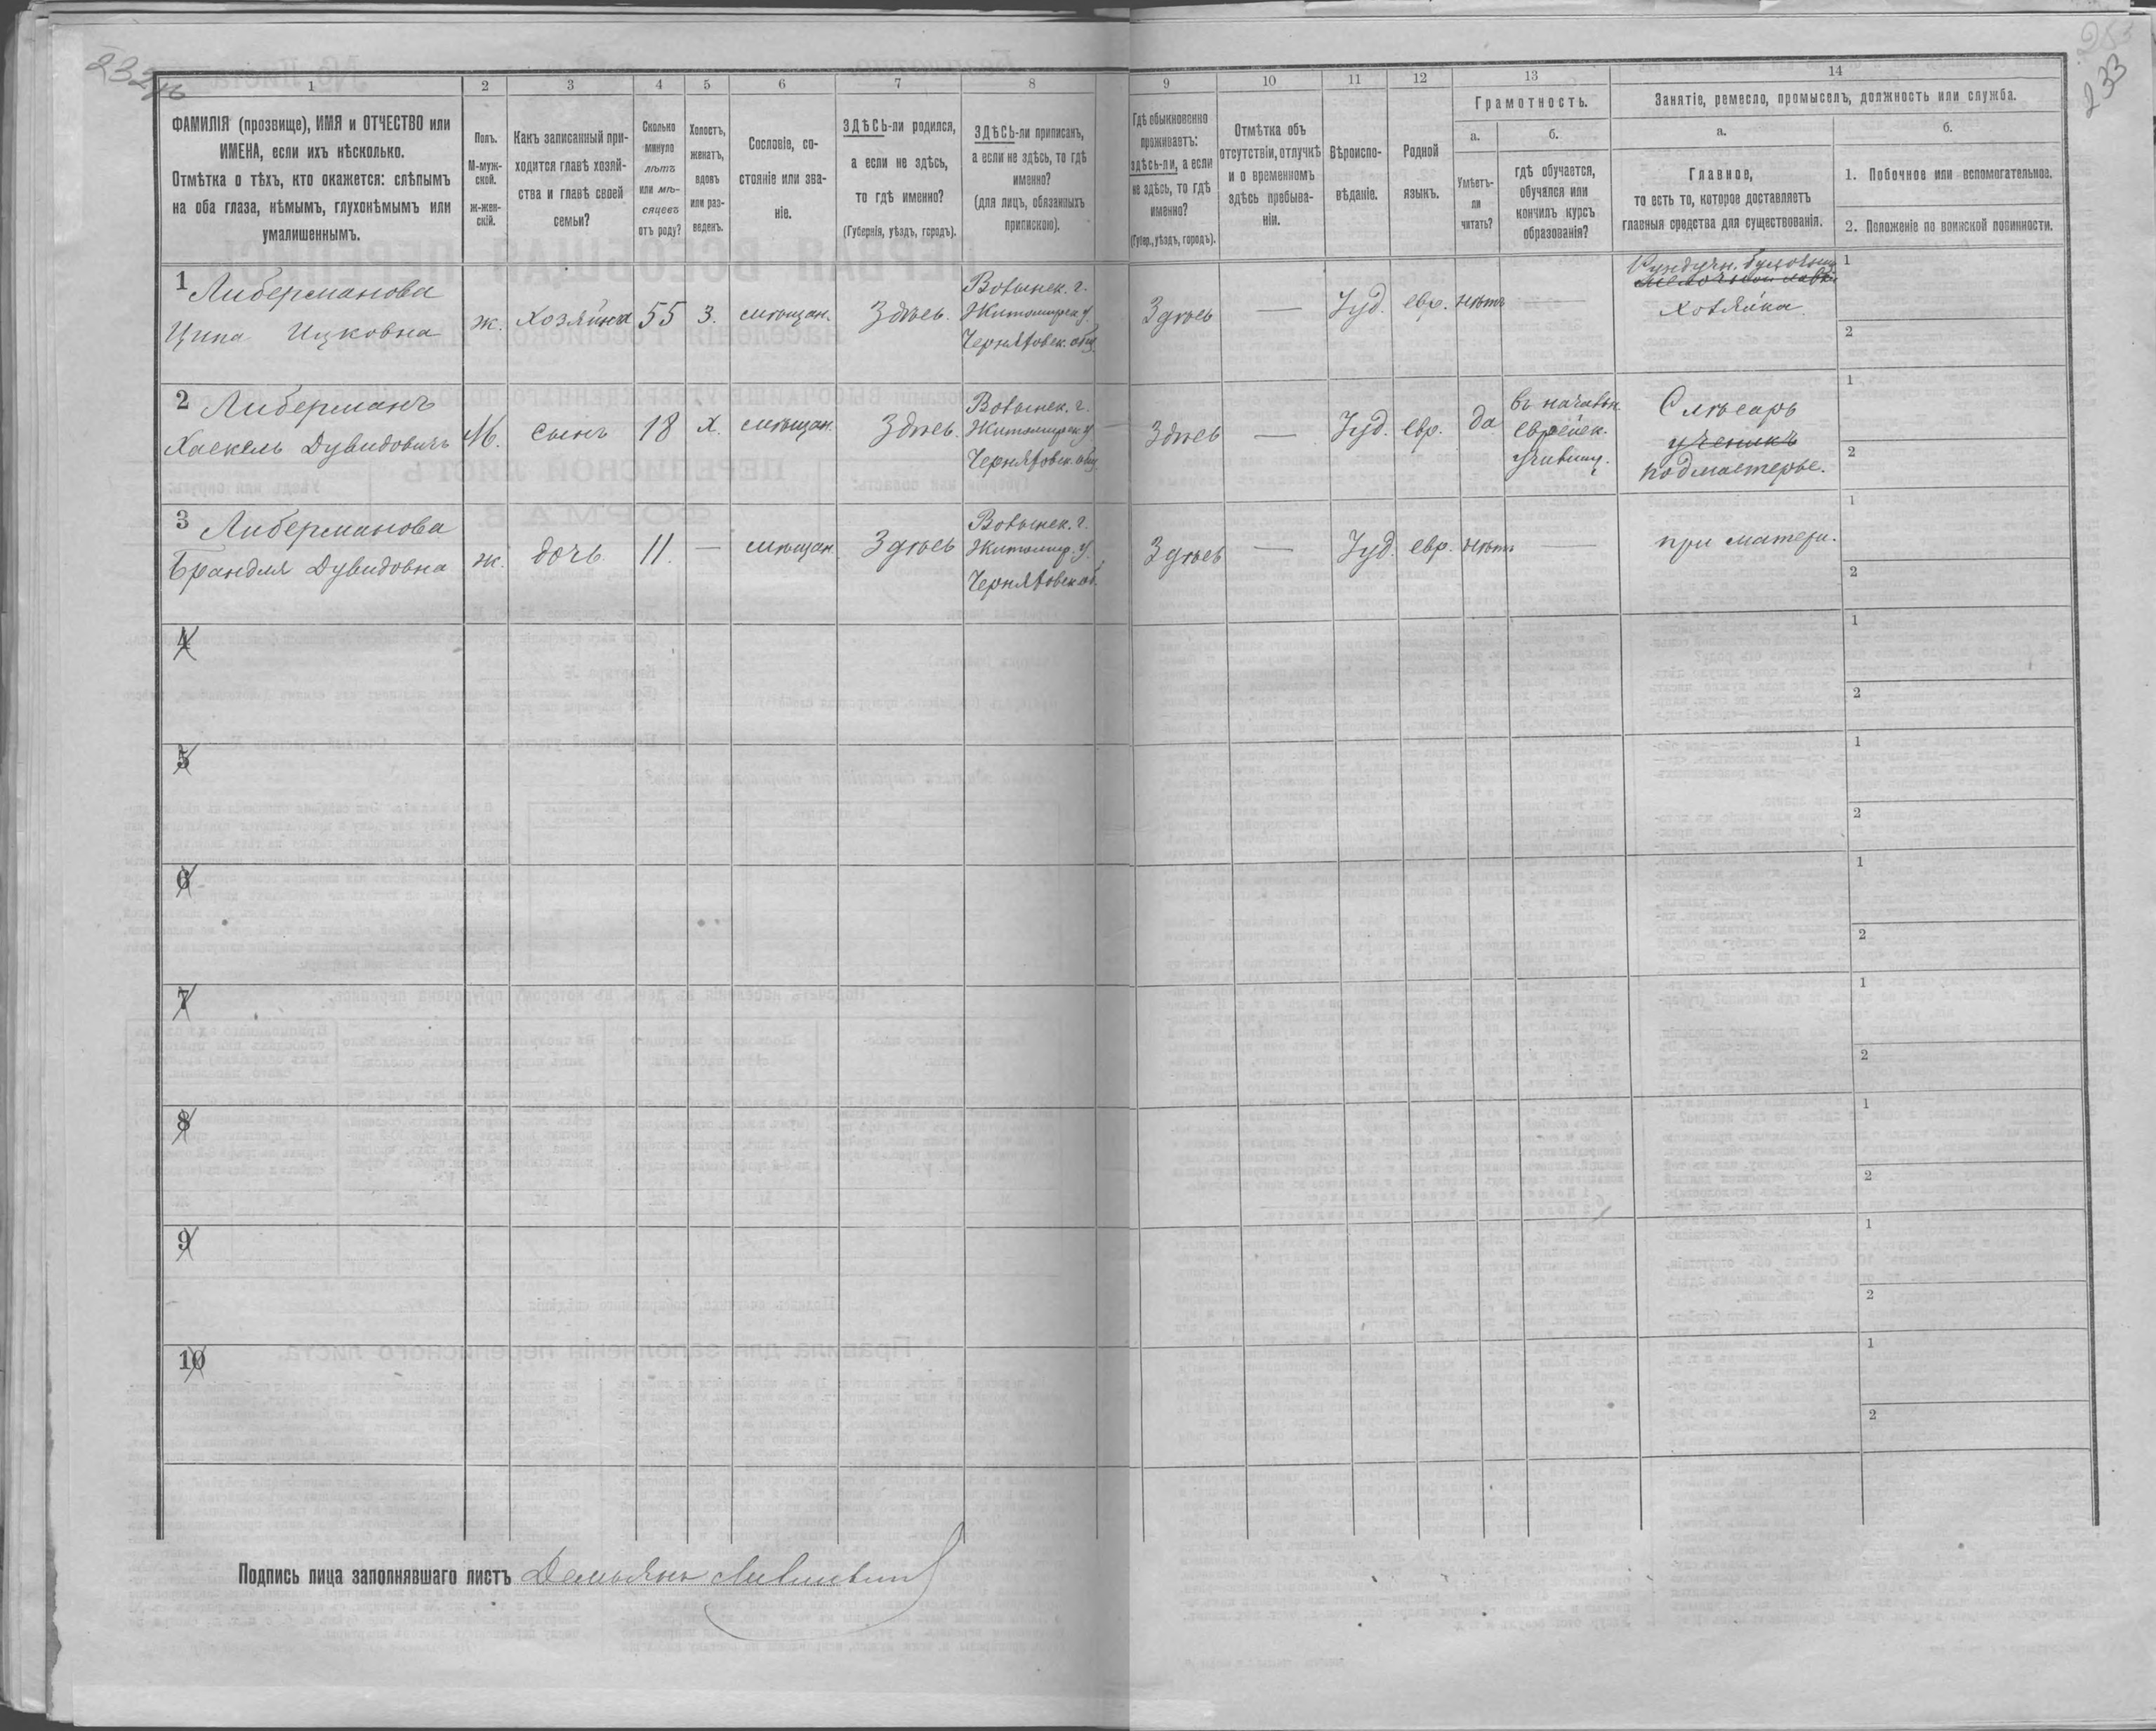 232
233
1
2
3
4
5
6
7
8
9
10
11
12
13
14
ФАМИЛІЯ (прозвище), ИМЯ и ОТЧЕСТВО или
ИМЕНА, если ихъ нѣсколько.
Отмѣтка о тѣхъ, кто окажется: слѣпымъ
на оба глаза, нѣмымъ, глухонѣмымъ или
умалишеннымъ.
Полъ.
М-муж-
ской.
ж-жен-
скій.
Какъ записанный при-
ходится главѣ хозяй-
ства и главѣ своей
семьи?
Сколько
минуло
лѣтъ
или мѣ-
сяцевъ
отъ роду?
Холостъ,
женатъ,
вдовъ
или раз-
веденъ.
Сословіе, со-
стояніе или зва-
ніе.
ЗДѢСЬ-ли родился,
а если не здѣсь,
то гдѣ именно?
(Губернія, уѣздъ, городъ).
ЗДѢСЬ-ли приписанъ,
а если не здѣсь, то гдѣ
именно?
(для лицъ, обязанныхъ
припискою).
Гдѣ обыкновенно
проживаетъ:
здѣсь-ли, а если
не здѣсь, то гдѣ
именно?
(Губер., уѣздъ, городъ).
Отмѣтка объ
отсутствіи, отлучкѣ
и о временномъ
здѣсь пребыва-
ніи.
Вѣроиспо-
вѣданіе.
Родной
языкъ.
Грамотность.
а.
Умѣетъ-
ли
читать?
б.
гдѣ обучается,
обучался или
кончилъ курсъ
образованія?
Занятіе, ремесло, промыселъ, должность или служба.
а.
Главное,
то есть то, которое доставляетъ
главныя средства для существованія.
б.
1. Побочное или вспомогательное.
2. Положеніе по воинской повинности.
1 Либерманова
Ципа Ицковна
ж.
хозяйка
55
З.
мѣщан.
Здѣсь.
Волынск. г.
Житомирск. у.
Черняховск. общ.
Здѣсь
—
Іуд.
евр.
нѣтъ
—
хозяйка.
1
2
2 Либерманъ
Хаскель Дувидовичъ
М.
сынъ
18
Х.
мѣщан.
Здѣсь.
Волынск. г.
Житомирск. у.
Черняховск. общ.
Здѣсь
—
Іуд.
евр.
да
въ начальн.
еврейск.
училищ.
Слѣсарь
ученикъ
подмастерье.
1
2
3 Либерманова
Брандля Дувидовна
ж.
дочь
11.
—
мѣщан.
Здѣсь
Волынск. г.
Житомир. у.
Черняховск. об.
Здѣсь
—
Іуд.
евр.
нѣтъ
—
при матери.
1
2
4
1
2
5
1
2
6
1
2
7
1
2
8
1
2
9
1
2
10
1
2
Подпись лица заполнявшаго листъ Демьянъ